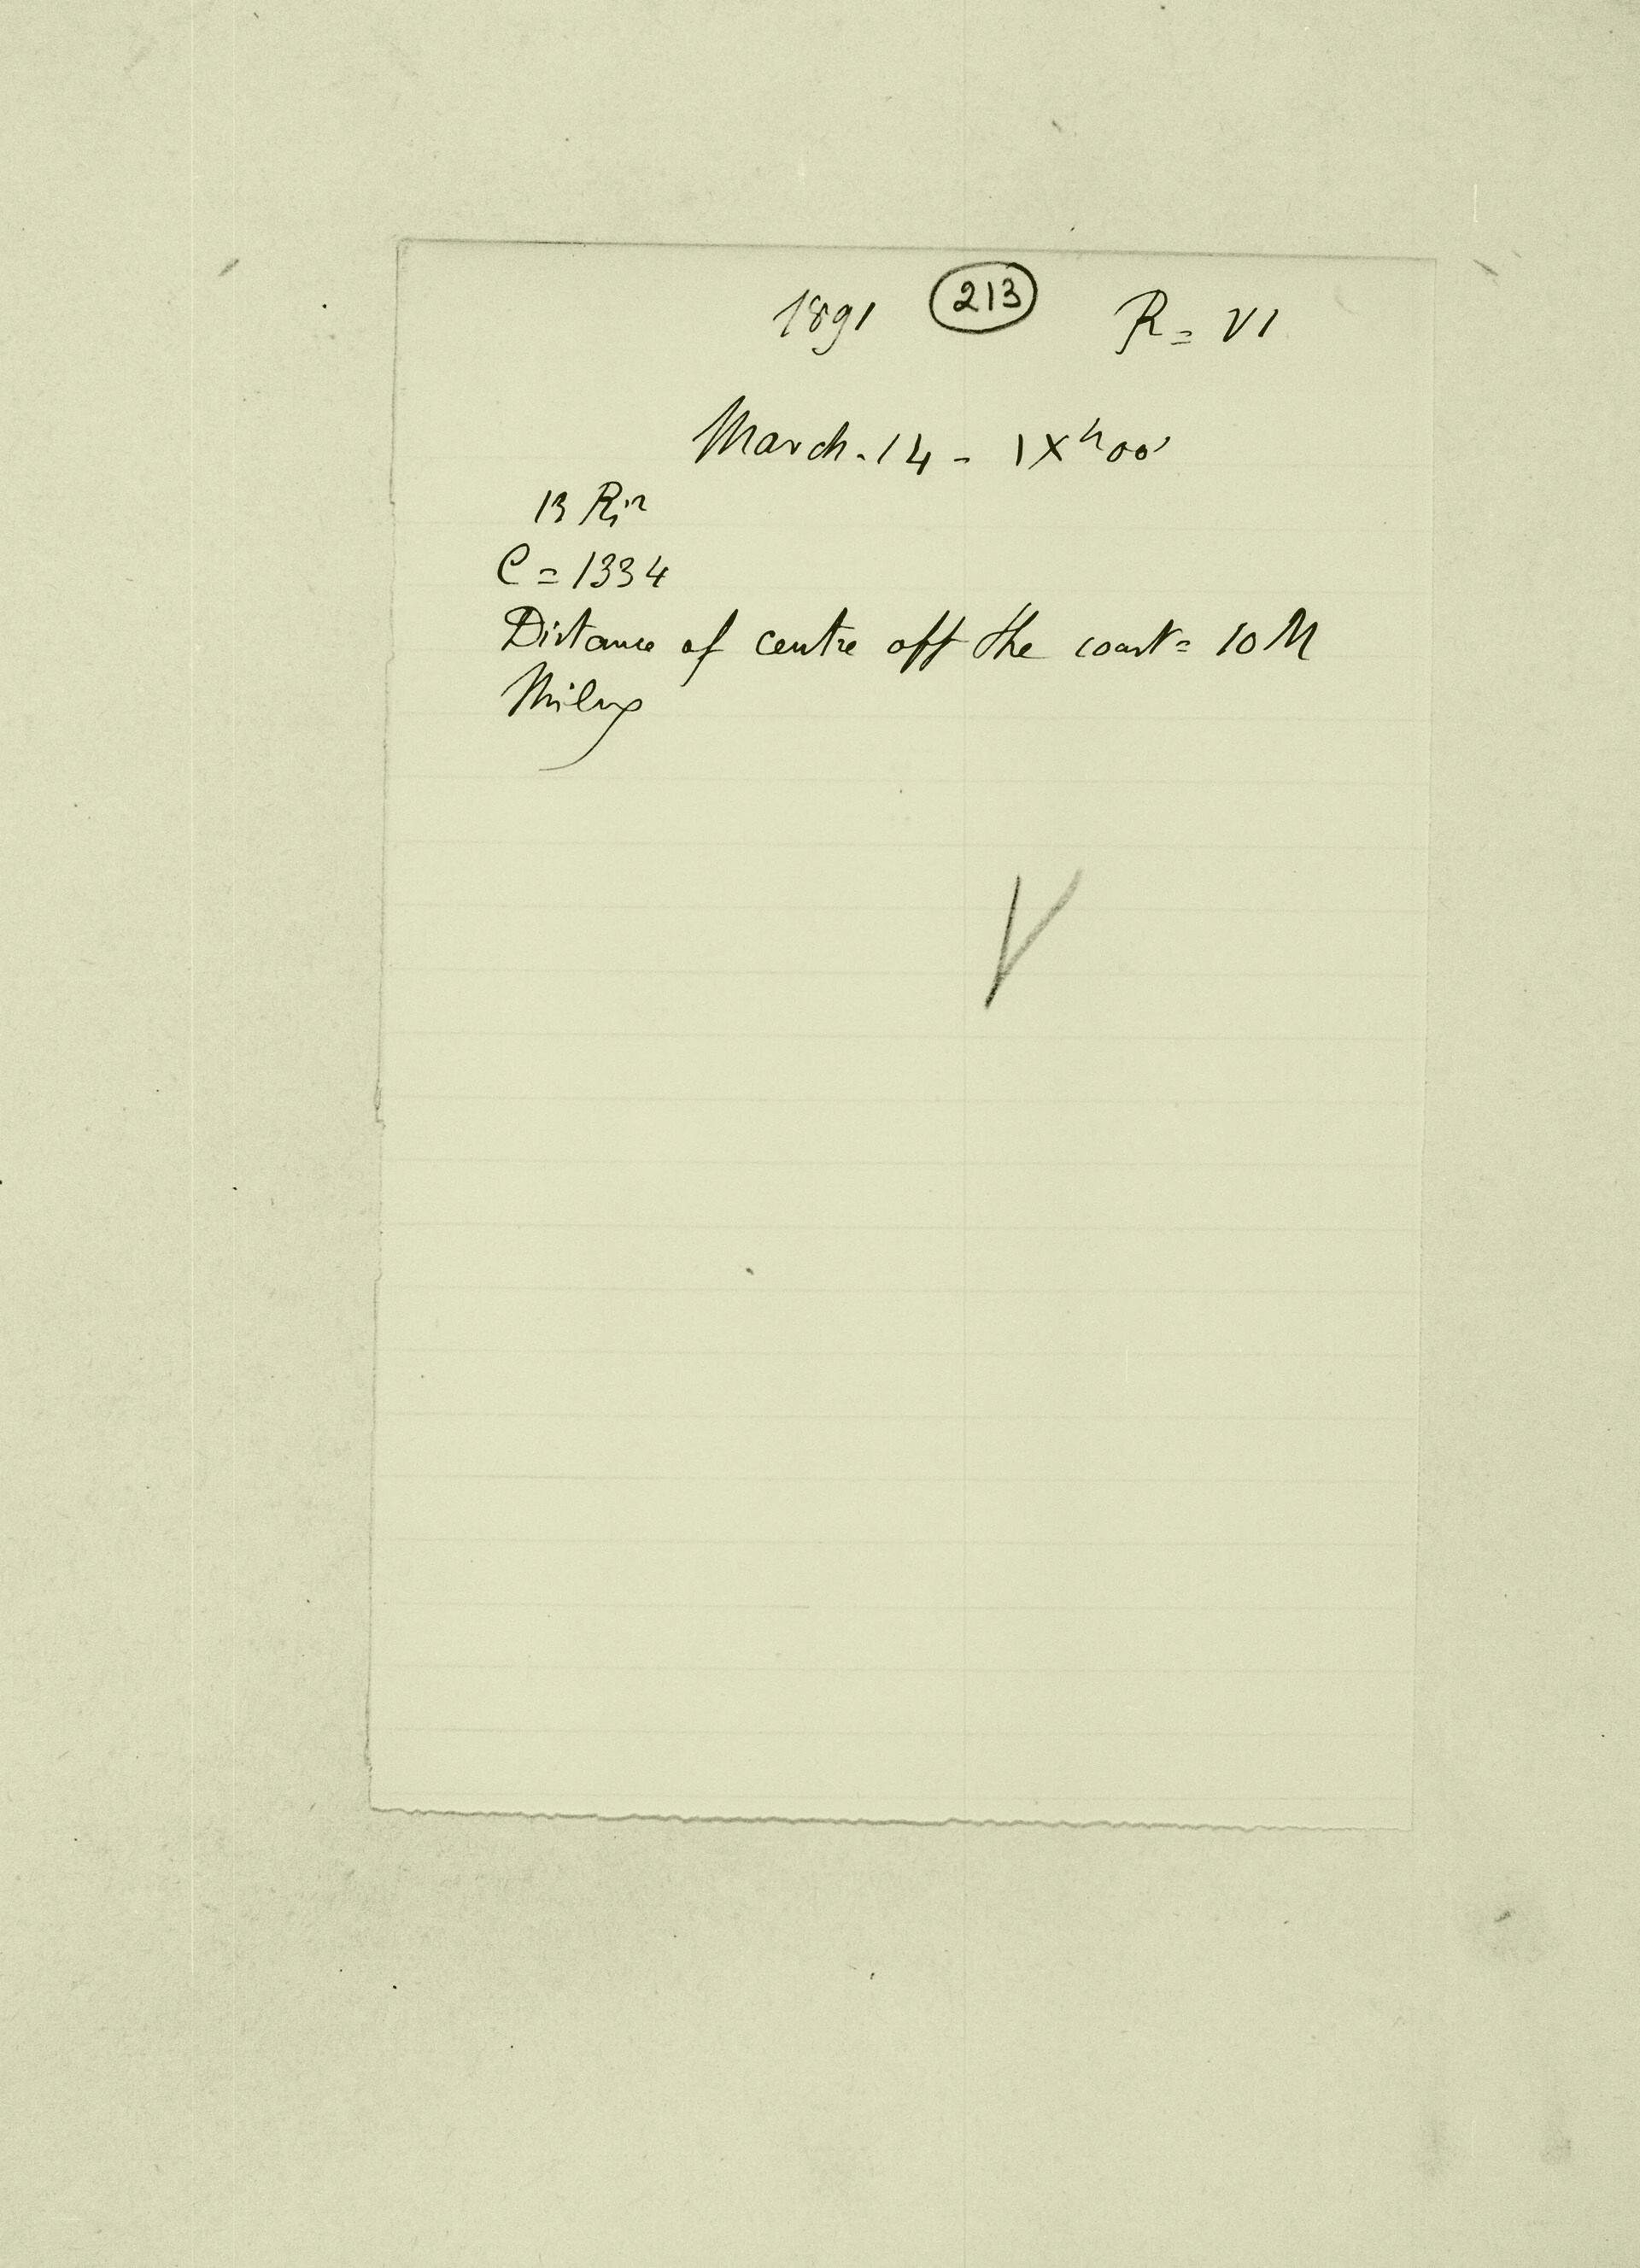 1891 213 R = VI
March. 14 - IXʰ00'
13 Rin
C = 1334
Distance of centre off the coast = 10 M
Milne
V